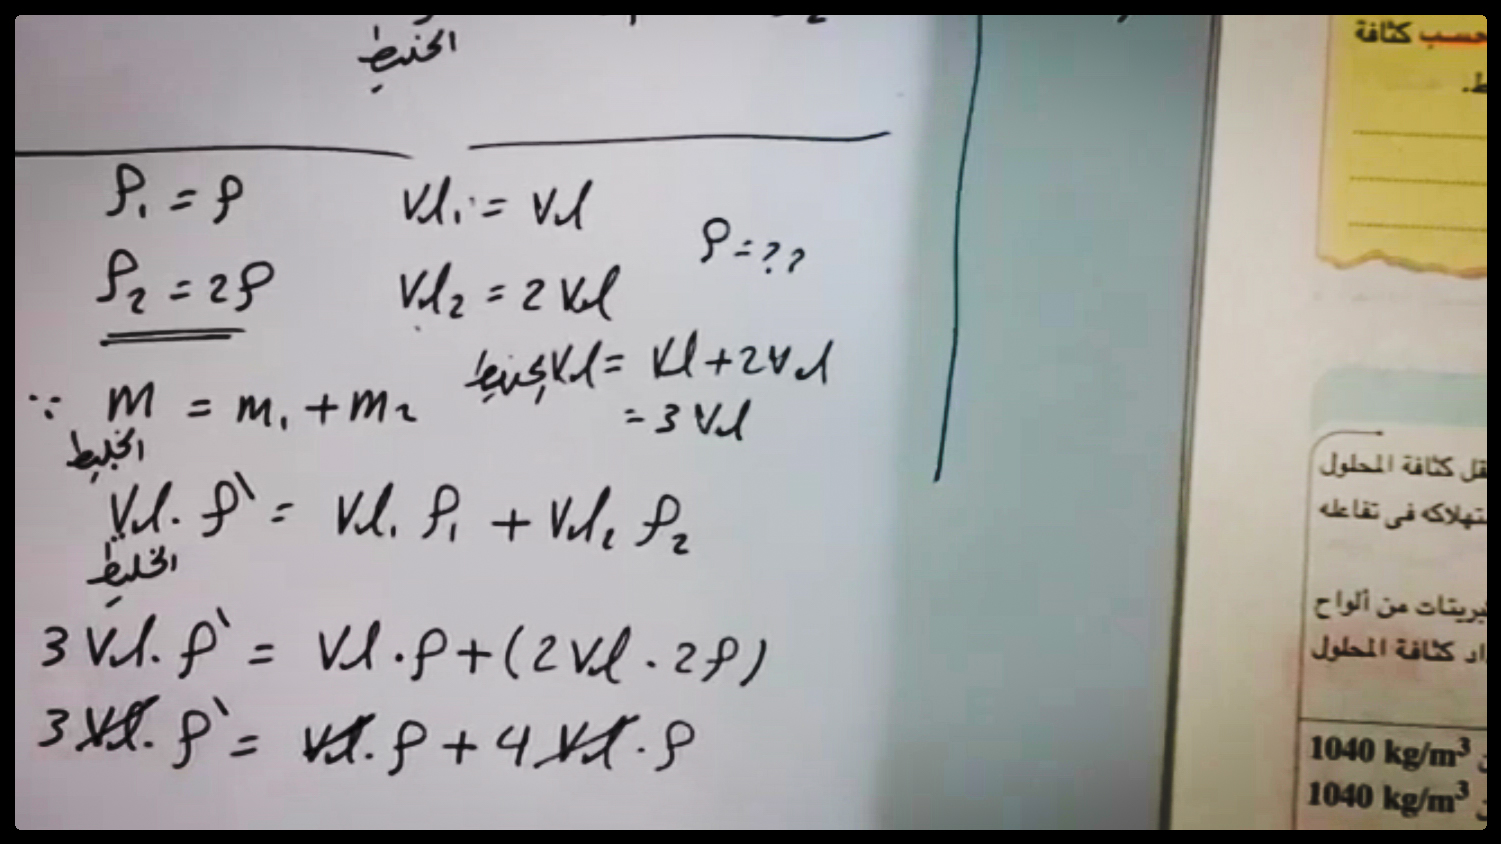 الخليط
ρ₁ = ρ
Vol₁ = Vol
ρ = ??
ρ₂ = 2ρ
Vol₂ = 2 Vol
الخليط Vol = Vol + 2 Vol
= 3 Vol
∵ m الخليط = m₁ + m₂
Vol الخليط · ρ' = Vol₁ ρ₁ + Vol₂ ρ₂
3 Vol · ρ' = Vol · ρ + (2 Vol · 2ρ)
3 Vol · ρ' = Vol · ρ + 4 Vol · ρ
حسب كثافة
كثافة المحلول
فى تفاعله
من ألواح
كثافة المحلول
1040 kg/m³
1040 kg/m³